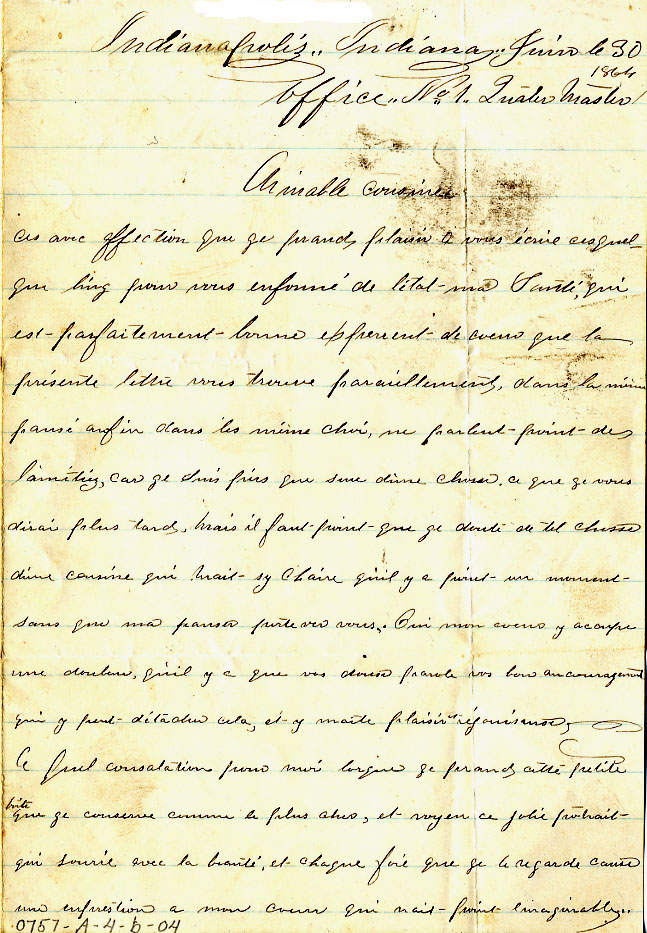 Indianapolis,, Indiana,, Juin le 30
1864
Office,, No 1. Quater Master
Aimable cousine
ces avec affection que ge prands plaisir a vous écrire cesquel-
que ling pour vous enformé de l'état ma Santé, qui
est parfaitement bonne esperent de coeur que la
présente lettre vous trouve paraillement, dans la même
pansé anfin dans les même choi, ne parlent point des
l'amitiéz, car ge suis plus que sure d'une chose. ce que ge vous
dirai plus tard, Mais il faut point que ge doute de tel chosse
d'une cousine qui mait sy Chaire qu'il y a point un moment
sans que ma pansé porte ver vous. Oui mon coeur y accupe
une douleur, qu'il y a que vos douse parole vos bon ancouragement
qui y peut détacher cela, et y maite plaisir
Quel consalation pour moi lorsque ge prands cette petite
boite
que ge conserve comme le plus cher, et voyen ce jolie portrait
qui sourie avec la beauté, et chaque foié que ge le regarde cause
une enpression a mon coeur qui nait point l'imaginable,,
0757-A-4-b-04